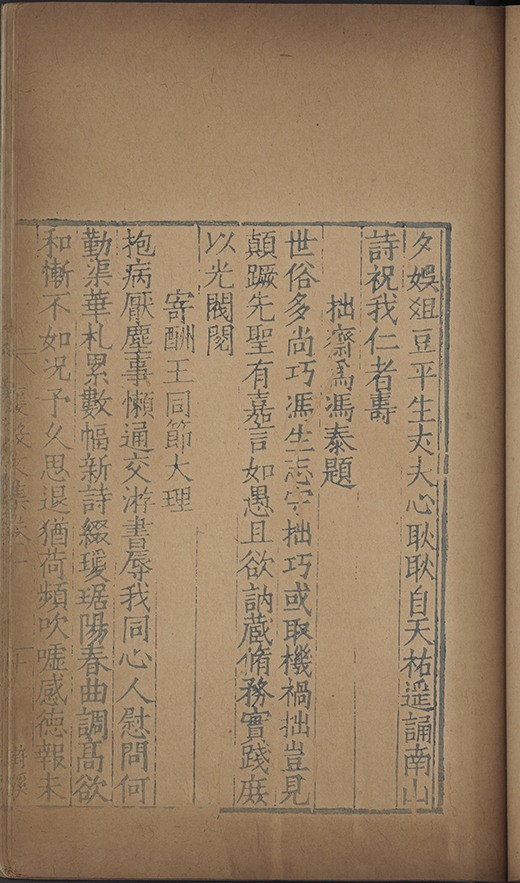 夕娛俎豆平生丈夫心耿耿自天祐遥誦南山
詩祝我仁者壽
拙齋爲馮泰題
世俗多尚巧馮生志守拙巧或取機禍拙豈見
顛蹶先聖有嘉言如愚且欲訥蔵脩務實踐庻
以光閥閱
寄酬王同節大理
抱病厭塵事懶通交游書辱我同心人慰問何
勤渠華札累數幅新詩綴瓊琚陽春曲調髙欲
和慚不如况予久思退猶荷頻吹噓感徳報未
文集卷